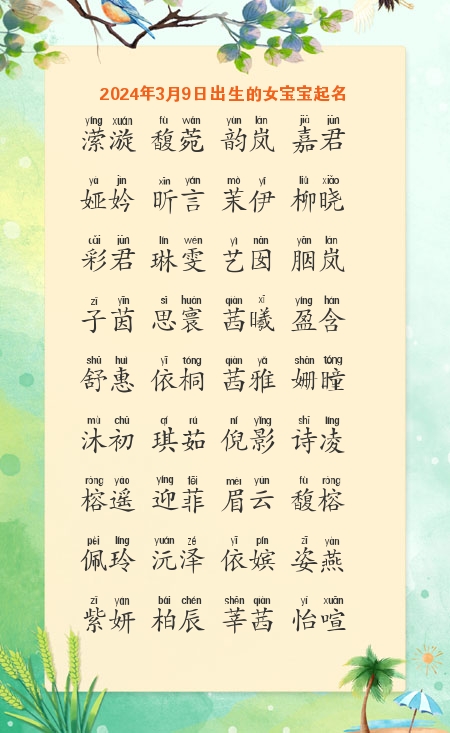 2024年3月9日出生的女宝宝起名
yíng xuán fù wǎn yùn lán jiā jūn
潆漩 馥菀 韵岚 嘉君
yà jìn xīn yán mò yī liǔ xiǎo
娅妗 昕言 茉伊 柳晓
cǎi jūn lín wén yì nān yān lán
彩君 琳雯 艺囡 胭岚
zǐ yīn sī huán qiàn xī yíng hán
子茵 思寰 茜曦 盈含
shū huì yī tóng qiàn yǎ shān tóng
舒惠 依桐 茜雅 姗瞳
mù chū qí rú ní yǐng shī líng
沐初 琪茹 倪影 诗凌
róng yáo yíng fēi méi yún fù róng
榕遥 迎菲 眉云 馥榕
pèi líng yuán zé yī pín zī yàn
佩玲 沅泽 依嫔 姿燕
zǐ yán bǎi chén shēn qiàn yí xuān
紫妍 柏辰 莘茜 怡喧